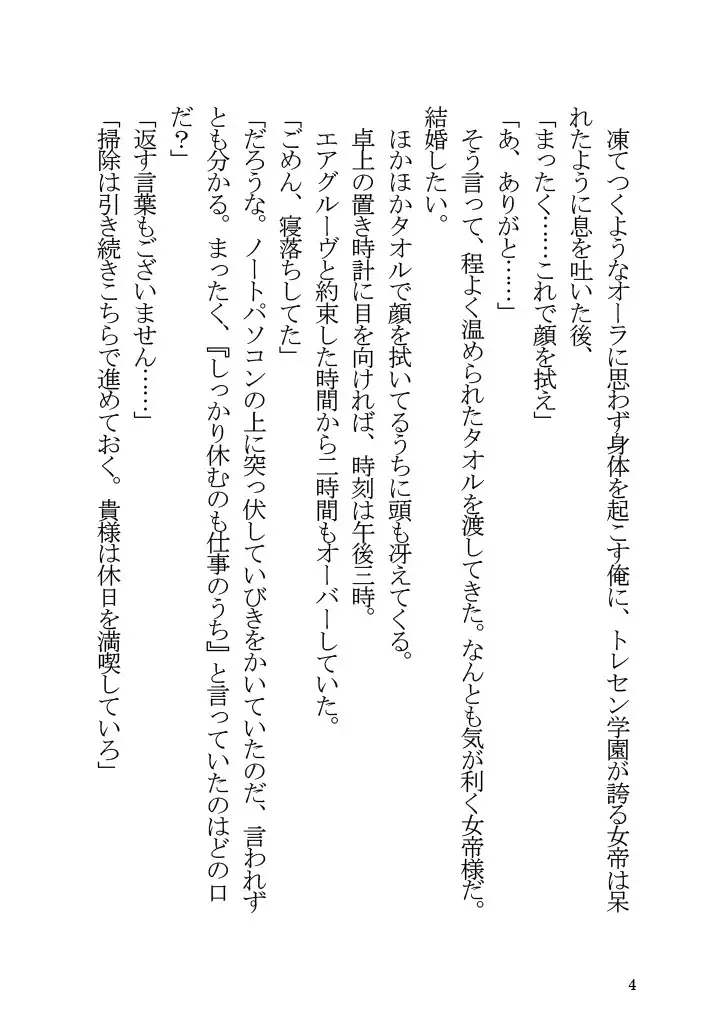 凍てつくようなオーラに思わず身体を起こす俺に、トレセン学園が誇る女帝は呆
れたように息を吐いた後、
「まったく……これで顔を拭え」
「あ、ありがと……」
そう言って、程よく温められたタオルを渡してきた。なんとも気が利く女帝様だ。
結婚したい。
ほかほかタオルで顔を拭いてるうちに頭も冴えてくる。
卓上の置き時計に目を向ければ、時刻は午後三時。
エアグルーヴと約束した時間から二時間もオーバーしていた。
「ごめん、寝落ちしてた」
「だろうな。ノートパソコンの上に突っ伏していびきをかいていたのだ、言われず
とも分かる。まったく、『しっかり休むのも仕事のうち』と言っていたのはどの口
だ？」
「返す言葉もございません……」
「掃除は引き続きこちらで進めておく。貴様は休日を満喫していろ」
4